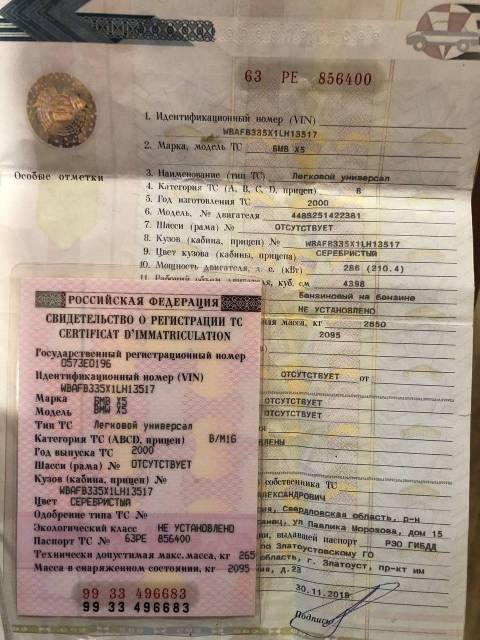 63 РЕ 856400
1. Идентификационный номер (VIN)
WBAFB335X1LH13517
2. Марка, модель ТС БМВ Х5
Особые отметки
3. Наименование (тип ТС) Легковой универсал
4. Категория ТС (A, B, C, D, прицеп) В
5. Год изготовления ТС 2000
6. Модель, № двигателя 448S251422381
7. Шасси (рама) № ОТСУТСТВУЕТ
8. Кузов (кабина, прицеп) № WBAFB335X1LH13517
9. Цвет кузова (кабины, прицепа) СЕРЕБРИСТЫЙ
10. Мощность двигателя, л. с. (кВт) 286 (210.4)
11. Рабочий объем двигателя, куб. см 4398
Бензиновый на бензине
НЕ УСТАНОВЛЕНО
масса, кг 2650
2095
ОТСУТСТВУЕТ от
ОТСУТСТВУЕТ
ОТСУТСТВУЕТ
собственника ТС
АЛЕКСАНДРОВИЧ
Свердловская область, р-н
ул Павлика Морозова, дом 15
выдавшей паспорт РЭО ГИБДД
по Златоустовскому ГО
область, г. Златоуст, пр-кт им
д.23
30.11.2018
Подпись
РОССИЙСКАЯ ФЕДЕРАЦИЯ
СВИДЕТЕЛЬСТВО О РЕГИСТРАЦИИ ТС
CERTIFICAT D'IMMATRICULATION
Государственный регистрационный номер
О573ЕО196
Идентификационный номер (VIN)
WBAFB335X1LH13517
Марка БМВ Х5
Модель BMW X5
Тип ТС Легковой универсал
Категория ТС (ABCD, прицеп) B/M1G
Год выпуска ТС 2000
Шасси (рама) № ОТСУТСТВУЕТ
Кузов (кабина, прицеп) №
WBAFB335X1LH13517
Цвет СЕРЕБРИСТЫЙ
Одобрение типа ТС №
Экологический класс НЕ УСТАНОВЛЕНО
Паспорт ТС № 63РЕ 856400
Технически допустимая макс. масса, кг 265
Масса в снаряженном состоянии, кг 2095
99 33 496683
99 33 496683